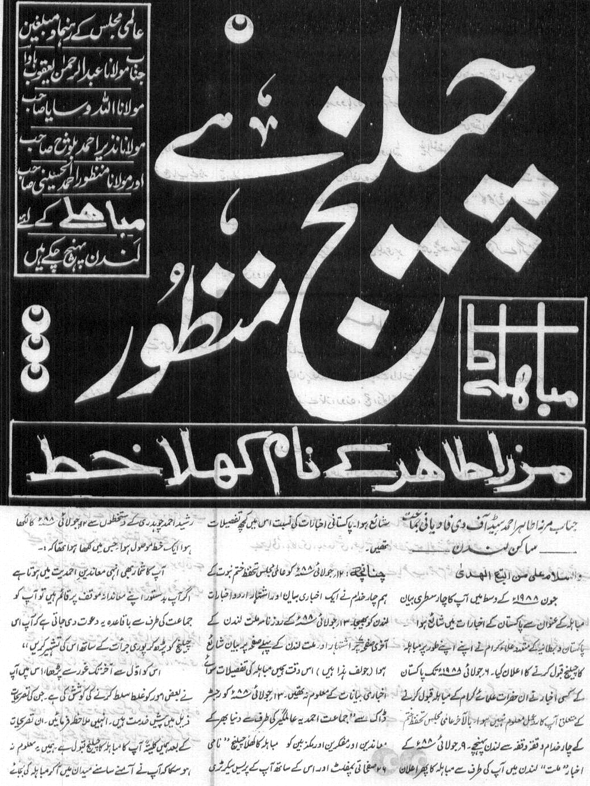 عالمی مجلس کے رہنما و مبلغین
جناب مولانا عبدالرحمٰن یعقوب باوا
مولانا اللہ وسایا صاحب
مولانا نذیر احمد بلوچ صاحب
اور مولانا منظور احمد الحسینی صاحب
مباھلے کے لئے
لندن پہنچ چکے ہیں
مباھلے کا
چیلنج منظور ہے
مرزا طاھر کے نام کھلا خط
جناب مرزا طاہر احمد ہیڈ آف دی قادیانی جماعت
ساکن لندن
والسلام علی من اتبع الھدیٰ
جون ۱۹۸۸ء کے وسط میں آپ کا چار سطری بیان
مباہلہ کے عنوان سے پاکستان کے اخبارات میں شائع ہوا
پاکستان و برطانیہ کے متعدد علماء کرام نے اپنے اپنے طور پر مباہلہ
کا چیلنج قبول کرنے کا اعلان کیا۔ ۶ جولائی ۱۹۸۸ء تک پاکستان
کے کسی اخبار نے ان حضرات علمائے کرام کے مباہلہ قبول کرنے
کے متعلق آپ کا ردعمل معلوم نہیں ہوا، بالآخر عالمی مجلس تحفظ ختم
کے چار خدام وقفہ وقفہ سے لندن پہنچے۔ ۹ جولائی ۸۸ء کے
اخبار "ملت" لندن میں آپ کی طرف سے مباہلہ کا پھر اعلان
شائع ہوا۔ پاکستانی اخبارات کی نسبت اس میں کچھ تفصیلات
تھیں۔
چنانچہ ۱۲ جولائی ۸۸ء کو عالمی مجلس تحفظ ختم نبوت کے
ہم چار خدام نے ایک اخباری بیان اور اشتہار اردو اخبارات
لندن کو بھیجا۔ ۱۳ جولائی ۸۸ء کے روزنامہ ملت لندن کے
آخری صفحہ پر اشتہار اور ملت لندن کے پہلے صفحہ پر بیان شائع
ہوا (جو لف ہذا ہیں) اس وقت ہمیں مباہلہ کی تفصیلات سوائے
اخباری بیانات کے معلوم نہ تھیں۔ ۱۳ جولائی ۸۸ء کو رجسٹر
ڈاک سے "جماعت احمدیہ عالمگیر کی طرف سے دنیا بھر کے
معاندین اور مکفرین اور مکذبین کو مباہلہ کا کھلا چیلنج" نامی
صفحاتی پمفلٹ اور اس کے ساتھ آپ کے پریس سیکرٹری
رشید احمد چوہدری کے دستخطوں سے جولائی ۸۸ء کا لکھا
ہوا ایک خط موصول ہوا جس میں لکھا ہوا تھا کہ:۔
آپ کا شمار بھی انہی معاندین احمدیت میں ہوتا ہے
اگر آپ بدستور اپنے معاندانہ موقف پر قائم ہیں تو آپ کو
جماعت کی طرف سے باقاعدہ یہ دعوت دی جاتی ہے کہ آپ اس
چیلنج کو پڑھ کر پوری جرأت کے ساتھ اس کی تشہیر کریں"
اس کو اول سے آخر تک غور سے پڑھا، اس میں آپ
نے بعض امور کو غلط ملط کرنے کی کوشش کی ہے۔ جن کی تصریحات
ذیل میں پیش خدمت ہیں۔ انہیں ملاحظہ فرمائیں۔ ان تصریحات
کے بعد ہمیں کلیتاً آپ کا مباہلہ کا چیلنج قبول ہے۔ ہمیں یہ معلوم نہ
ہو سکا کہ آپ نے آمنے سامنے میدان میں آ کر مباہلہ کی بجائے